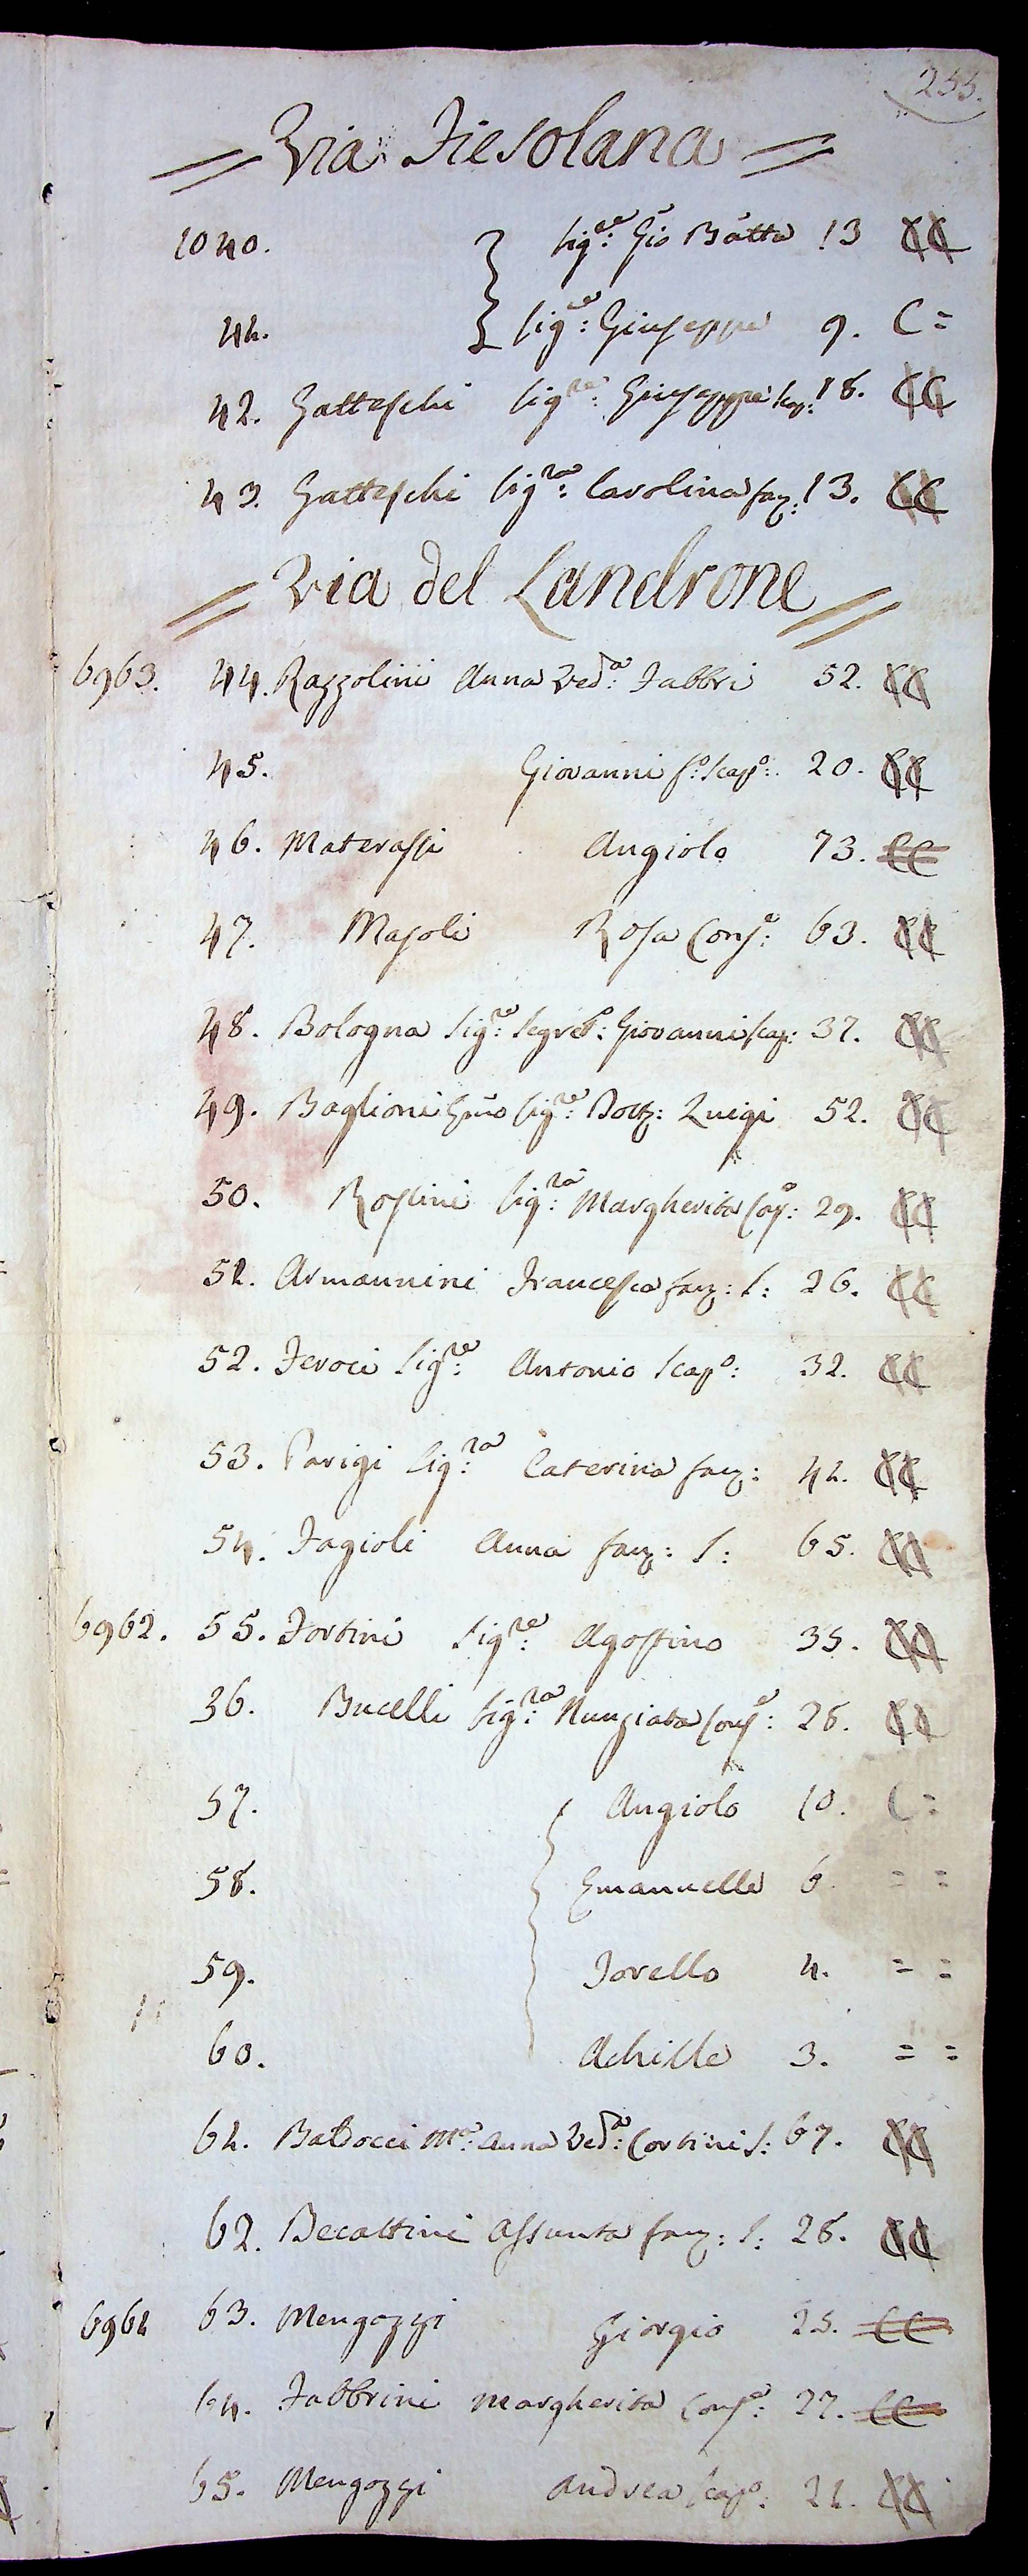 255.
= Via Fiesolana =
1040. Sig:re Gio Batta 13 CC
41. Sig:re Giuseppe 9. C =
42. Gatteschi Sig:re Giuseppe Scap: 18. CC
43. Gatteschi Sig:ra Carolina fanz: 13. CC
= Via del Landrone =
6963. 44. Razzolini Anna Ved:a Fabbri 52. CC
45. Giovanni f:o Scap:o 20. CC
46. Materassi Angiolo 73. CC
47. Masoli Rosa Cons:e 63. CC
48. Bologna Sig:re Segret:o Giovanni Scap: 37. CC
49. Baglioni Sig:re Dott: Luigi 52. CC
50. Rossini Sig:ra Margherita 29. CC
51. Armannini Francesca fanz: S: 26. CC
52. Feroci Sig:re Antonio Scap:o 32. CC
53. Parigi Sig:ra Caterina fanz: 41. CC
54. Fagioli Anna fanz: S: 65. CC
6962. 55. Fortini Sig:re Agostino 35. CC
36. Bucelli Sig:ra Nunziata Cons:e 28. CC
57. Angiolo 10. C =
58. Emanuelle 6 = =
59. Forello 4. = =
60. Achille 3. = =
61. Baldocci M:a Anna Ved:a Cortini S: 67. CC
62. Becattini Assunta fanz: S: 28. CC
6961 63. Mengozzi Giorgio 25. CC
64. Fabbrini Margherita Cons:e 27. CC
65. Mengozzi Andrea Scap:o 21. CC